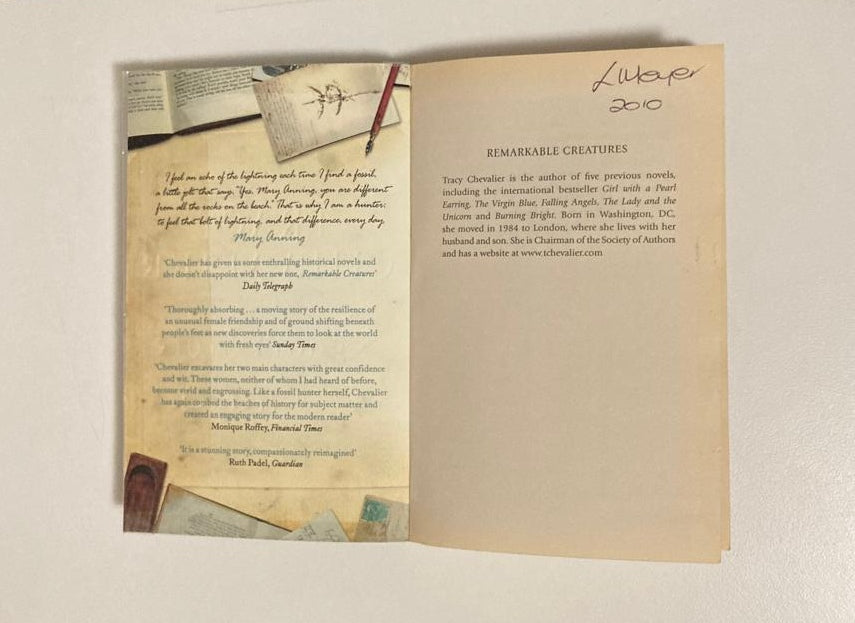 I feel an echo of the lightning each time I find a fossil,
a little jolt that says, "Yes, Mary Anning, you are different
from all the rocks on the beach." That is why I am a hunter:
to feel that bolt of lightning, and that difference, every day.
Mary Anning
'Chevalier has given us some enthralling historical novels and
she doesn't disappoint with her new one, Remarkable Creatures'
Daily Telegraph
'Thoroughly absorbing ... a moving story of the resilience of
an unusual female friendship and of ground shifting beneath
people's feet as new discoveries force them to look at the world
with fresh eyes' Sunday Times
'Chevalier excavates her two main characters with great confidence
and wit. These women, neither of whom I had heard of before,
become vivid and engrossing. Like a fossil hunter herself, Chevalier
has again combed the beaches of history for subject matter and
created an engaging story for the modern reader'
Monique Roffey, Financial Times
'It is a stunning story, compassionately reimagined'
Ruth Padel, Guardian
L Meyer
2010
REMARKABLE CREATURES
Tracy Chevalier is the author of five previous novels,
including the international bestseller Girl with a Pearl
Earring, The Virgin Blue, Falling Angels, The Lady and the
Unicorn and Burning Bright. Born in Washington, DC,
she moved in 1984 to London, where she lives with her
husband and son. She is Chairman of the Society of Authors
and has a website at www.tchevalier.com